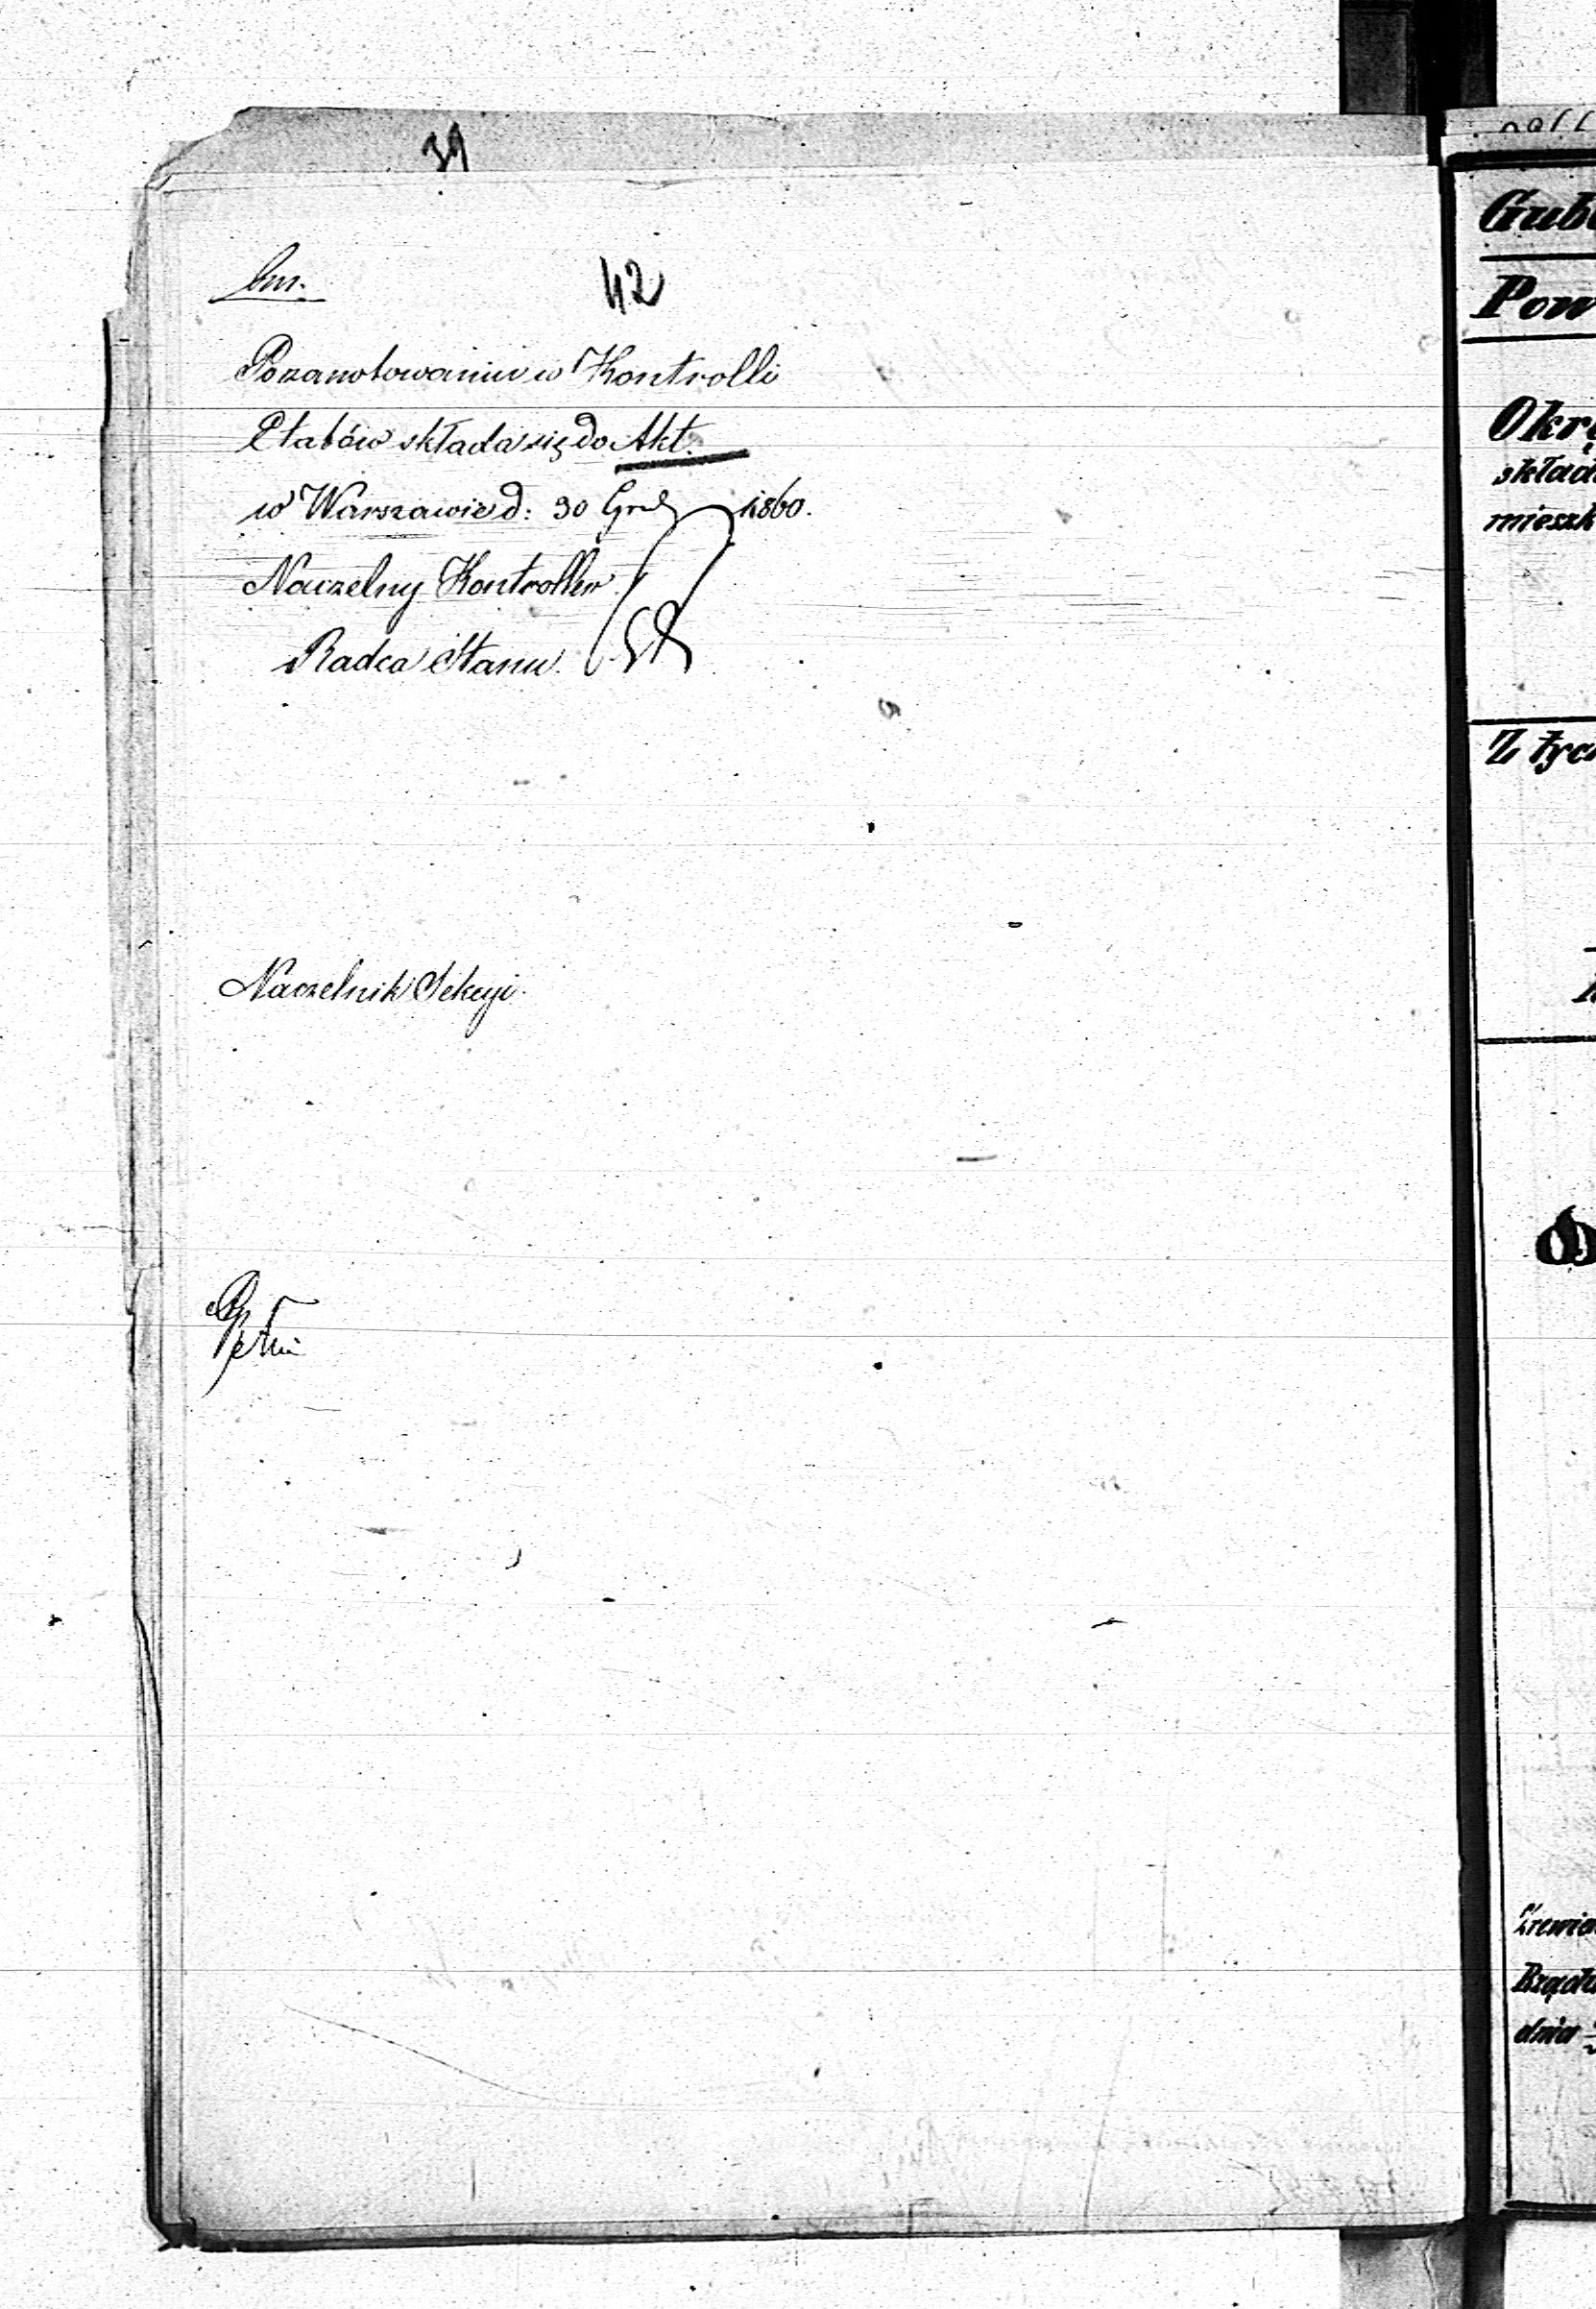 39
42
Po zanotowaniu w Kontrolli
Etatów składa się do Akt.
w Warszawie d: 30 Grud 1860.
Naczelny Kontroller
Radca Stanu
Naczelnik Sekcyi
Gub
Pow
Okrę
skład
mieszk
Z tyc
Rządu
dnia